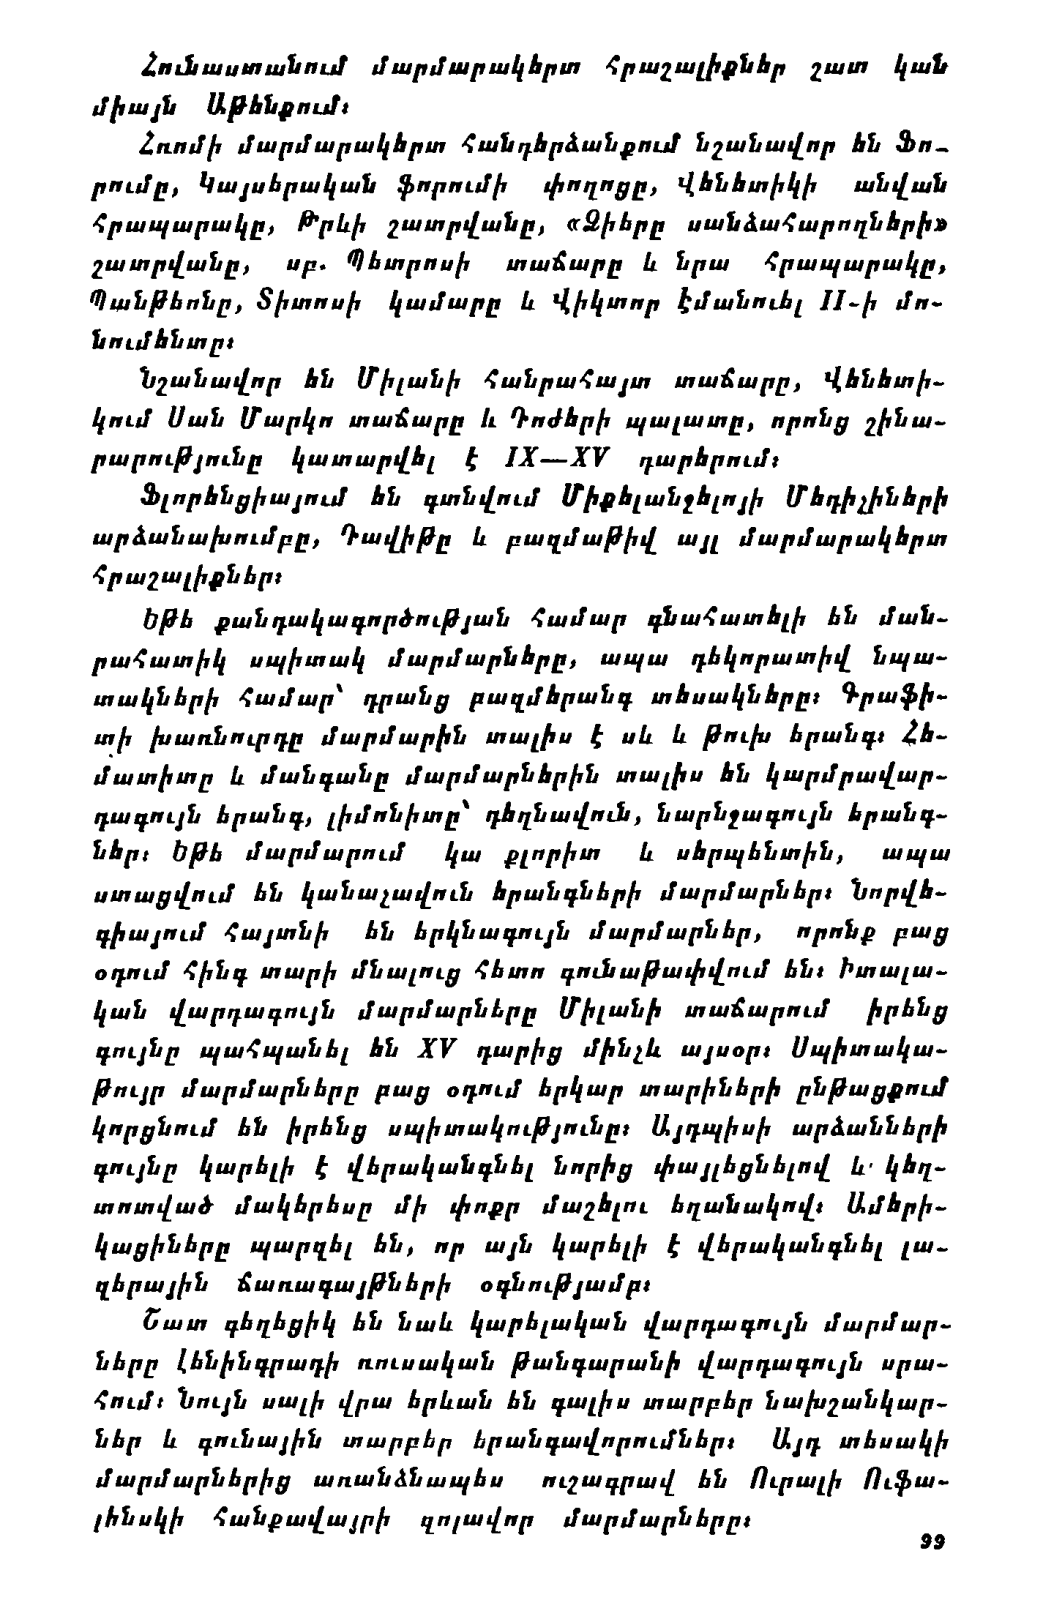 Հունաստանում մարմարակերտ հրաշալիքներ շատ կան
միայն Աթենքում։
Հռոմի մարմարակերտ հանդերձանքում նշանավոր են Ֆո-
րումը, Կայսերական ֆորումի փողոցը, Վենետիկի անվան
հրապարակը, Թրևի շատրվանը, «Ձիերը սանձահարողների»
շատրվանը, սբ. Պետրոսի տաճարը և նրա հրապարակը,
Պանթեոնը, Տիտոսի կամարը և Վիկտոր Էմանուել II-ի մո-
նումենտը։
Նշանավոր են Միլանի հանրահայտ տաճարը, Վենետի-
կում Սան Մարկո տաճարը և Դոժերի պալատը, որոնց շինա-
րարությունը կատարվել է IX—XV դարերում։
Ֆլորենցիայում են գտնվում Միքելանջելոյի Մեդիչիների
արձանախումբը, Դավիթը և բազմաթիվ այլ մարմարակերտ
հրաշալիքներ։
Եթե քանդակագործության համար գնահատելի են ման-
րահատիկ սպիտակ մարմարները, ապա դեկորատիվ նպա-
տակների համար՝ դրանց բազմերանգ տեսակները։ Գրաֆի-
տի խառնուրդը մարմարին տալիս է սև և թուխ երանգ։ Հե-
մատիտը և մանգանը մարմարներին տալիս են կարմրավար-
դագույն երանգ, լիմոնիտը՝ դեղնավուն, նարնջագույն երանգ-
ներ։ Եթե մարմարում կա քլորիտ և սերպենտին, ապա
ստացվում են կանաչավուն երանգների մարմարներ։ Նորվե-
գիայում հայտնի են երկնագույն մարմարներ, որոնք բաց
օդում հինգ տարի մնալուց հետո գունաթափվում են։ Իտալա-
կան վարդագույն մարմարները Միլանի տաճարում իրենց
գույնը պահպանել են XV դարից մինչև այսօր։ Սպիտակա-
թույր մարմարները բաց օդում երկար տարիների ընթացքում
կորցնում են իրենց սպիտակությունը։ Այդպիսի արձանների
գույնը կարելի է վերականգնել նորից փայլեցնելով և կեղ-
տոտված մակերեսը մի փոքր մաշելու եղանակով։ Ամերի-
կացիները պարզել են, որ այն կարելի է վերականգնել լա-
զերային ճառագայթների օգնությամբ։
Շատ գեղեցիկ են նաև կարելական վարդագույն մարմար-
ները Լենինգրադի ռուսական թանգարանի վարդագույն սրա-
հում։ Նույն սալի վրա երևան են գալիս տարբեր նախշանկար-
ներ և գունային տարբեր երանգավորումներ։ Այդ տեսակի
մարմարներից առանձնապես ուշագրավ են Ուրալի Ուֆա-
լինսկի հանքավայրի զոլավոր մարմարները։
99